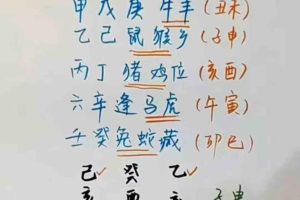 甲戊庚牛羊(丑未)
乙己鼠猴乡(子申)
丙丁猪鸡位(亥酉)
六辛逢马虎(午寅)
壬癸兔蛇藏(卯巳)
己✓ 癸 乙✓